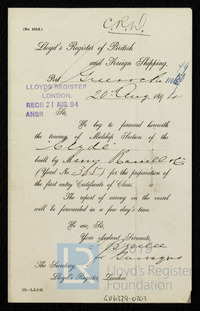 (No. 1012.)
C.R.D.
Lloyd's Register of British
and Foreign Shipping.
Port Greenock
LLOYDS REGISTER
LONDON.
RECD 21 AUG. 94
ANSD
20th Aug. 1894
Sir,
We beg to forward herewith
the tracing of Midship Section of the
"Clyde"
built by Messrs Russell & Co
(Yard No. 335) for the preparation of
the first entry Certificate of Class.
The report of survey on the vessel
will be forwarded in a few day's time.
We are, Sir,
Your obedient Servants,
The Secretary,
Lloyd's Register, London.
© 2019
Lloyd's Register
Foundation